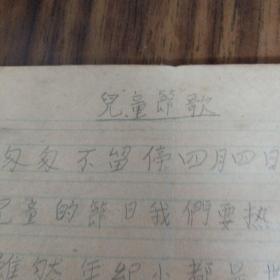 兒童節歌
匆匆不留停四月四日
兒童的節日我們要热
雖然年紀小都是